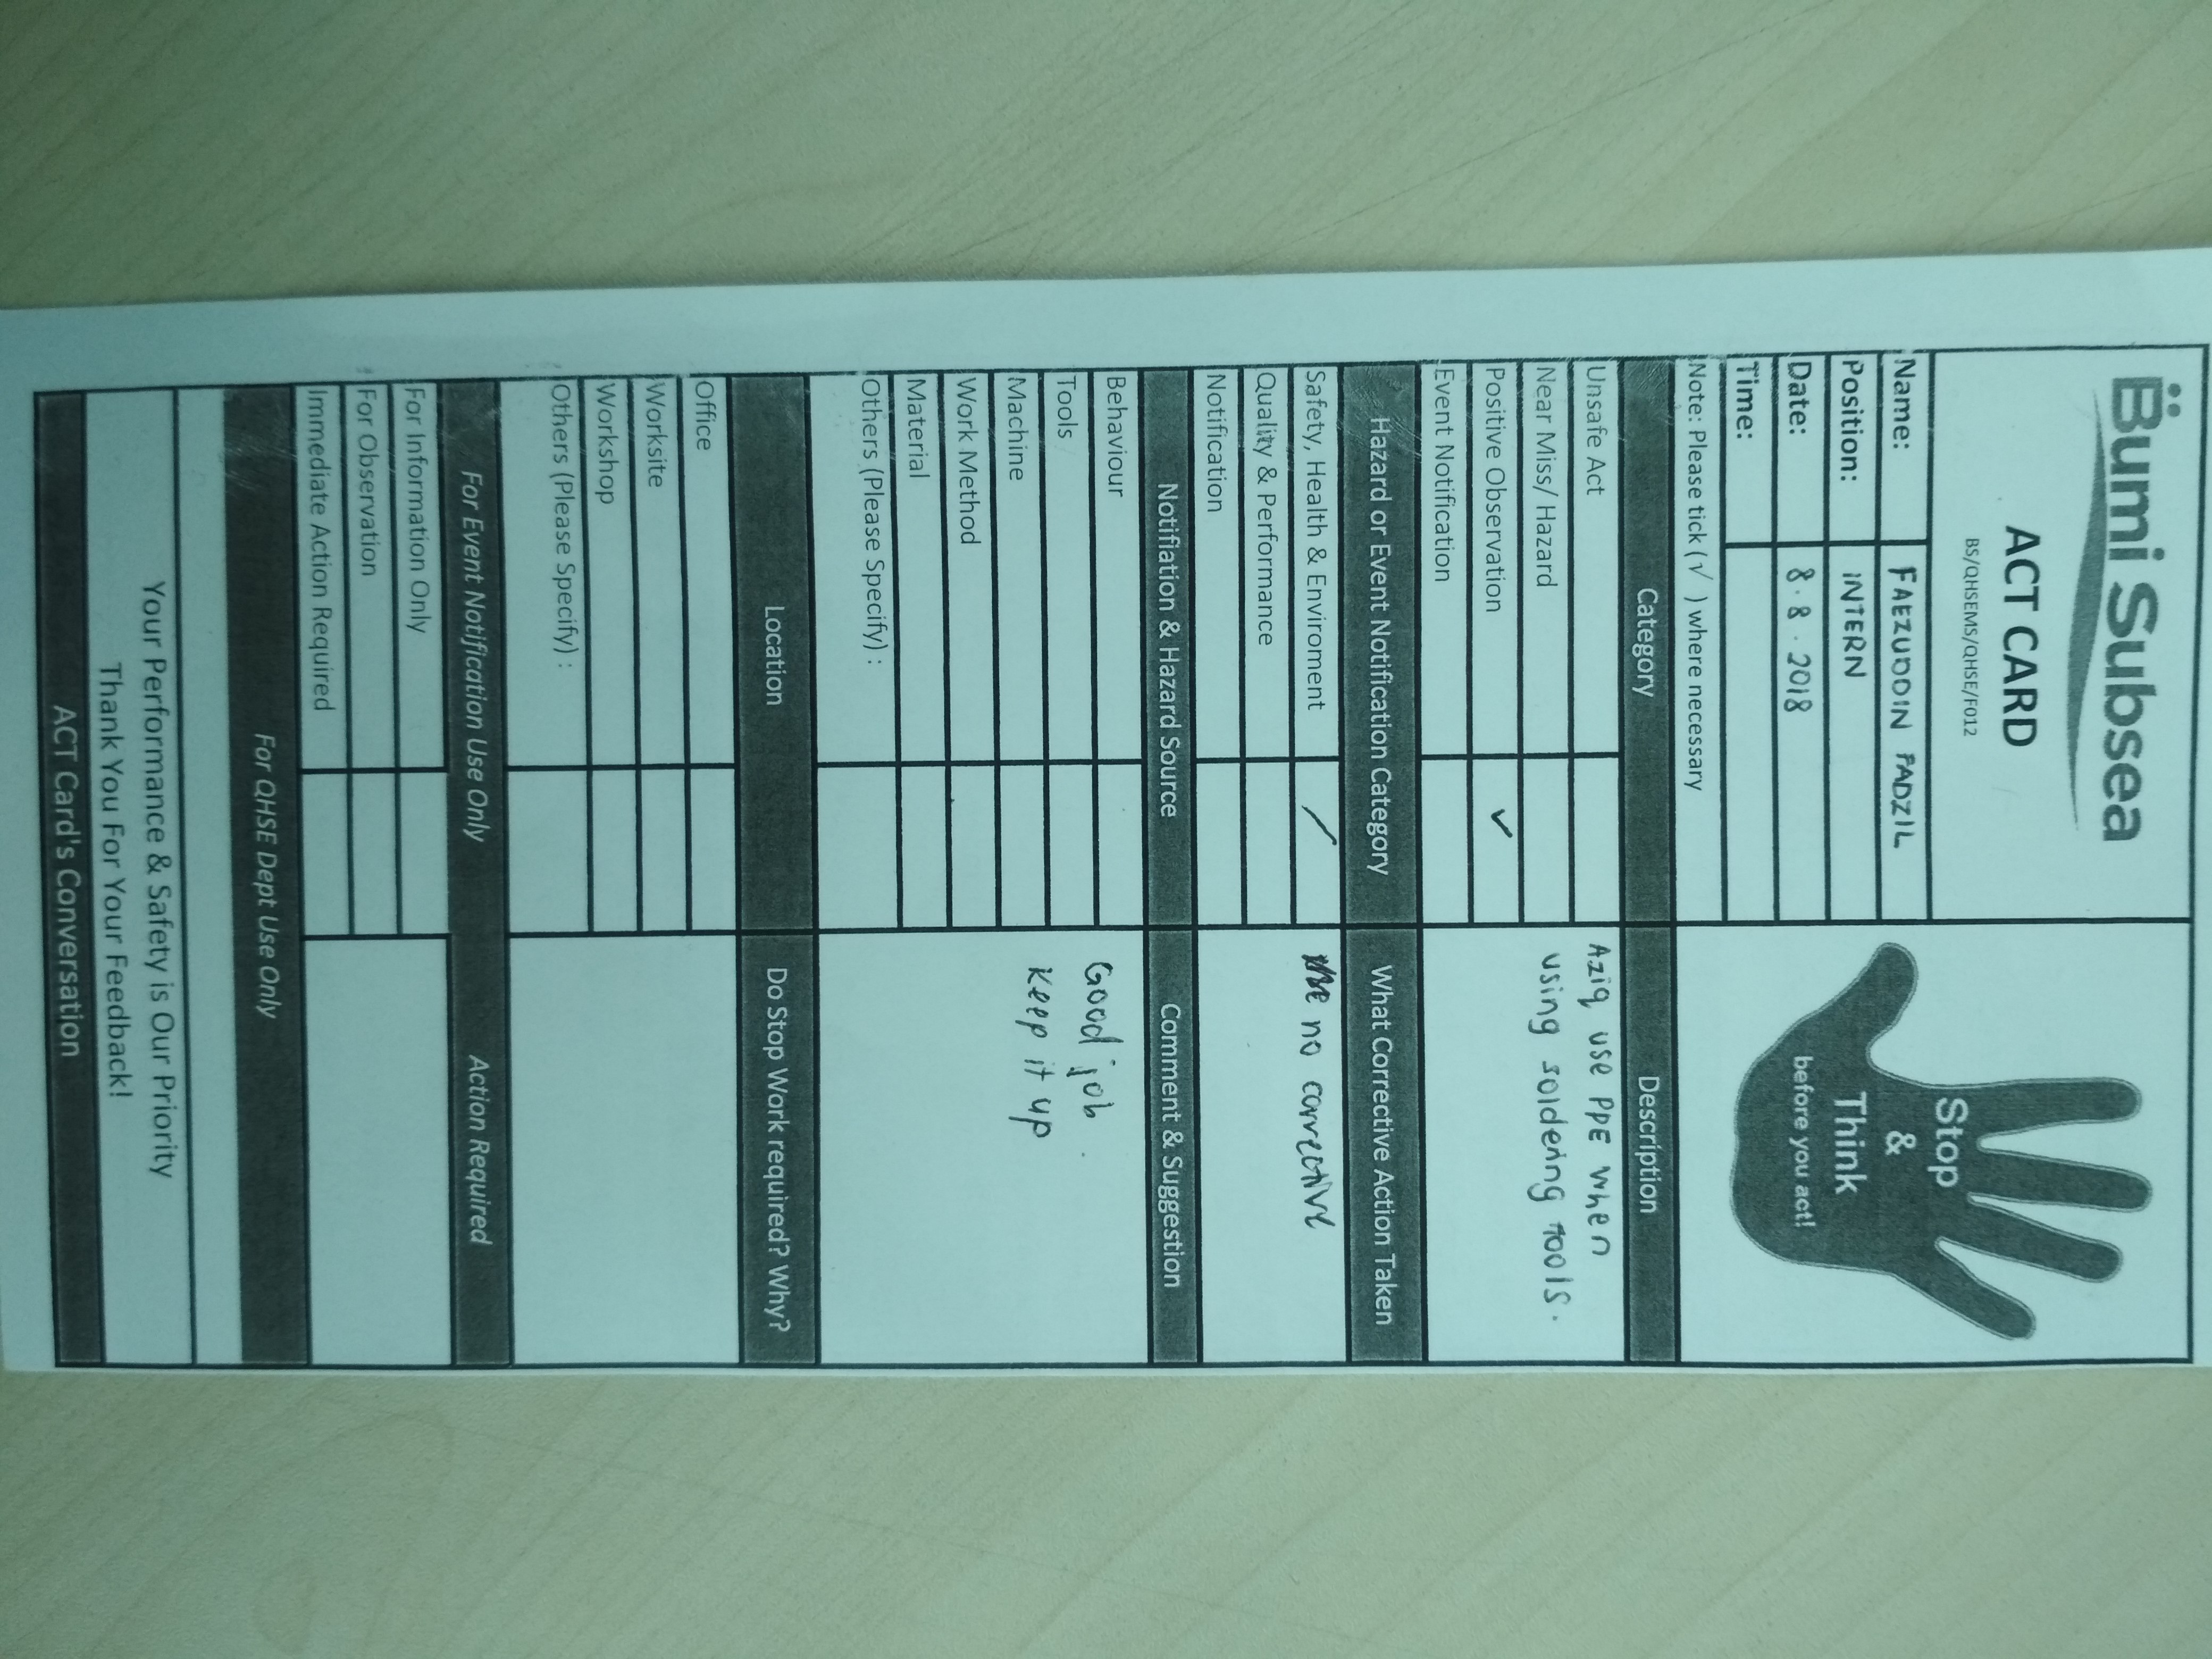 Bumi Subsea
ACT CARD
BS/QHSEMS/QHSE/F012
Stop
&
Think
before you act!
Name: FAEZUDDIN FADZIL
Position: INTERN
Date: 8.8.2018
Time:
Note: Please tick (√ ) where necessary
Category Description
Unsafe Act Aziq use PPE when
Near Miss/ Hazard using soldering tools.
Positive Observation ✓
Event Notification
Hazard or Event Notification Category What Corrective Action Taken
Safety, Health & Enviroment / no corrective
Quality & Performance
Notification
Notifiation & Hazard Source Comment & Suggestion
Behaviour Good job.
Tools Keep it up
Machine
Work Method
Material
Others (Please Specify) :
Location Do Stop Work required? Why?
Office
Worksite
Workshop
Others (Please Specify) :
For Event Notification Use Only Action Required
For Information Only
For Observation
Immediate Action Required
For QHSE Dept Use Only
Your Performance & Safety is Our Priority
Thank You For Your Feedback!
ACT Card's Conversation